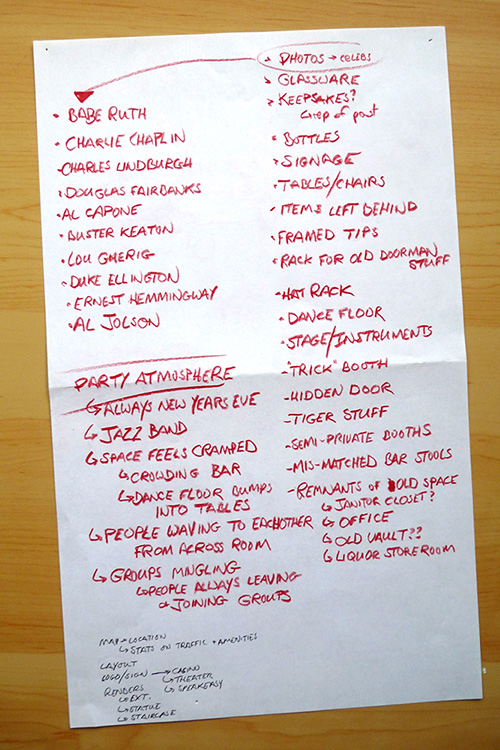 PHOTOS → CELEBS
GLASSWARE
KEEPSAKES?
of past
BOTTLES
SIGNAGE
TABLES/CHAIRS
ITEMS LEFT BEHIND
FRAMED TIPS
RACK FOR OLD DOORMAN
STUFF
HAT RACK
DANCE FLOOR
STAGE/INSTRUMENTS
"TRICK" BOOTH
HIDDEN DOOR
TIGER STUFF
SEMI-PRIVATE BOOTHS
MIS-MATCHED BAR STOOLS
REMNANTS OF OLD SPACE
↳ JANITOR CLOSET?
↳ OFFICE
↳ OLD VAULT??
↳ LIQUOR STOREROOM
• BABE RUTH
• CHARLIE CHAPLIN
• CHARLES LINDBURGH
• DOUGLAS FAIRBANKS
• AL CAPONE
• BUSTER KEATON
• LOU GHERIG
• DUKE ELLINGTON
• ERNEST HEMMINGWAY
• AL JOLSON
PARTY ATMOSPHERE
↳ ALWAYS NEW YEARS EVE
↳ JAZZ BAND
↳ SPACE FEELS CRAMPED
↳ CROWDING BAR
↳ DANCE FLOOR BUMPS
INTO TABLES
↳ PEOPLE WAVING TO EACHOTHER
FROM ACROSS ROOM
↳ GROUPS MINGLING
↳ PEOPLE ALWAYS LEAVING
JOINING GROUPS
MAP → LOCATION
↳ STATS ON TRAFFIC + AMENITIES
LAYOUT
LOGO/SIGN → CASINO
↳ THEATER
↳ SPEAKEASY
RENDERS
↳ EXT.
↳ STATUE
↳ STAIRCASE